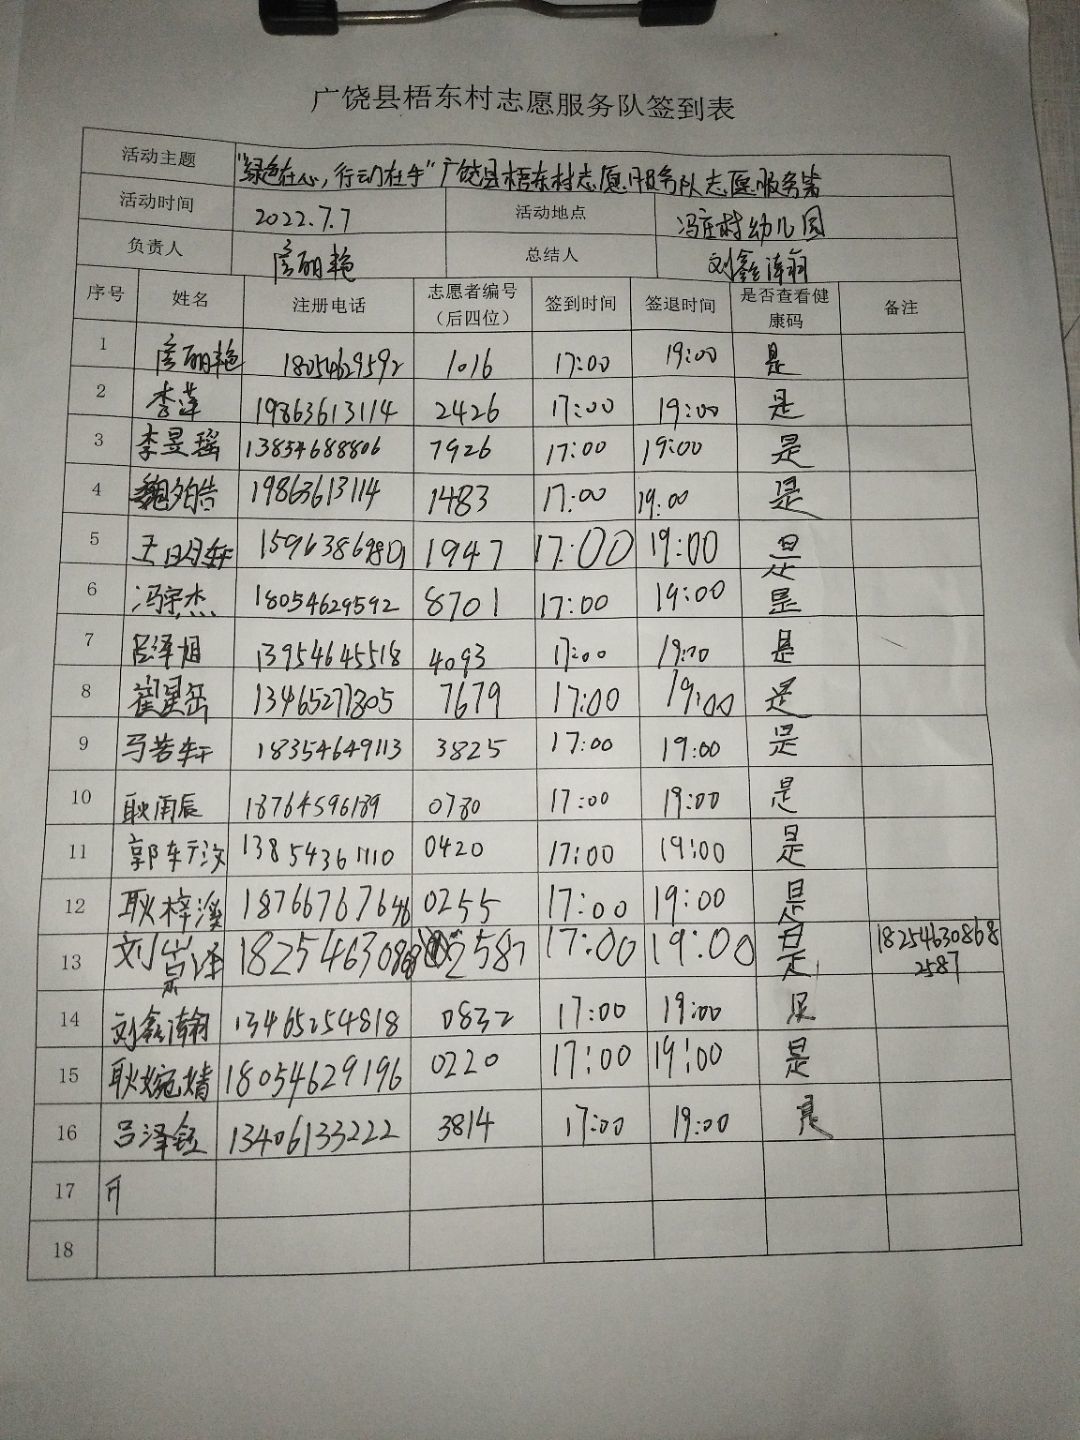 广饶县梧东村志愿服务队签到表
活动主题 "绿色在心，行动在手"广饶县梧东村志愿服务队志愿服务
活动时间 2022.7.7 活动地点 冯庄村幼儿园
负责人 总结人 刘鑫涛翰
序号 姓名 注册电话 志愿者编号（后四位） 签到时间 签退时间 是否查看健康码 备注
1 18054629592 1016 17:00 19:00 是
2 李莲 19863613114 2426 17:00 19:00 是
3 李昱瑶 13854688806 7926 17:00 19:00 是
4 魏夕皓 19863613114 1483 17:00 19:00 是
5 王明轩 1947 17:00 19:00 是
6 冯宇杰 18054629592 8701 17:00 19:00 是
7 吕泽旭 13954645518 4093 17:00 19:00 是
8 崔星岳 13465277805 7679 17:00 19:00 是
9 马若轩 18354649113 3825 17:00 19:00 是
10 耿雨辰 18764596189 0780 17:00 19:00 是
11 13854361110 0420 17:00 19:00 是
12 耿梓溪 18766767646 0255 17:00 19:00 是
13 刘崇泽 18254630868 2587 17:00 19:00 是 18254630868 2587
14 刘鑫涛翰 13465254818 0832 17:00 19:00 是
15 耿婉婧 18054629196 0220 17:00 19:00 是
16 吕泽钰 13406133222 3814 17:00 19:00 是
17
18